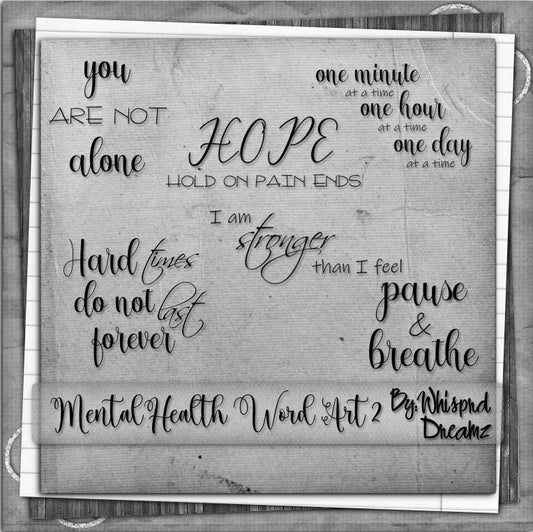 you
ARE NOT
alone
one minute
at a time
one hour
at a time
one day
at a time
HOPE
HOLD ON PAIN ENDS
I am
stronger
than I feel
Hard times
do not last
forever
pause
&
breathe
Mental Health Word Art 2
By: Whisprd
Dreamz